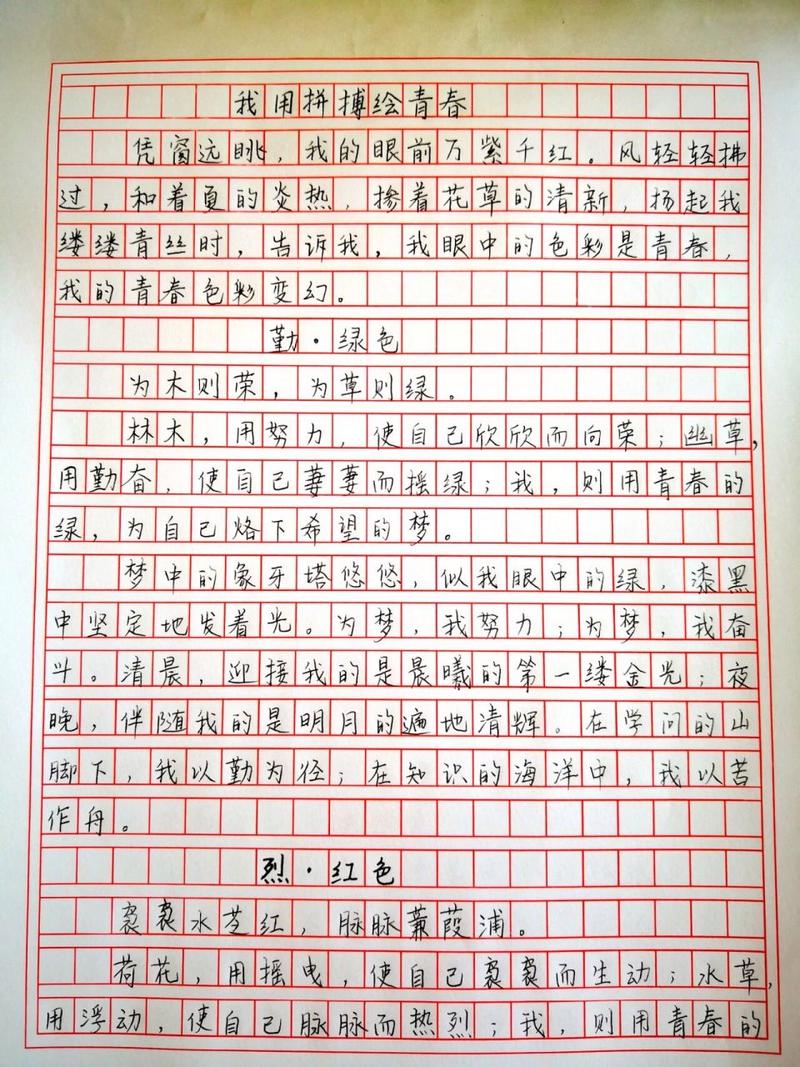 我用拼搏绘青春
凭窗远眺，我的眼前万紫千红。风轻轻拂
过，和着夏的炎热，掺着花草的清新，扬起我
缕缕青丝时，告诉我，我眼中的色彩是青春，
我的青春色彩变幻。
勤·绿色
为木则荣，为草则绿。
林木，用努力，使自己欣欣而向荣；幽草，
用勤奋，使自己萋萋而摇绿；我，则用青春的
绿，为自己烙下希望的梦。
梦中的象牙塔悠悠，似我眼中的绿，漆黑
中坚定地发着光。为梦，我努力；为梦，我奋
斗。清晨，迎接我的是晨曦的第一缕金光；夜
晚，伴随我的是明月的遍地清辉。在学问的山
脚下，我以勤为径；在知识的海洋中，我以苦
作舟。
烈·红色
袅袅水芝红，脉脉蒹葭浦。
荷花，用摇曳，使自己袅袅而生动；水草，
用浮动，使自己脉脉而热烈；我，则用青春的